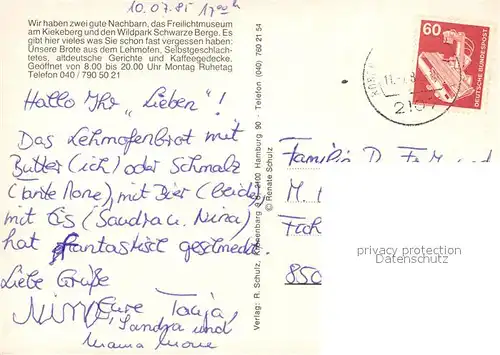 10.07.85 17ooh
Wir haben zwei gute Nachbarn, das Freilichtmuseum
am Kiekeberg und den Wildpark Schwarze Berge. Es
gibt hier vieles was Sie schon fast vergessen haben:
Unsere Brote aus dem Lehmofen, Selbstgeschlach-
tetes, altdeutsche Gerichte und Kaffeegedecke.
Geöffnet von 8.00 bis 20.00 Uhr Montag Ruhetag
Telefon 040 / 790 50 21
Hallo Ihr „Lieben"!
Das Lehmofenbrot mit
Butter (ich) oder Schmalz
(Tante Mone), mit Bier (beide),
mit Eis (Sandra u. Nina)
hat fantastisch geschmeckt.
Liebe Grüße
Eure Tanja,
NINA, Sandra und
Mama Mone
Verlag: R. Schulz, 2100 Hamburg 90 - Telefon (040) 760 21 54
© Renate Schulz
60
DEUTSCHE BUNDESPOST
210
Familie D.
M.
850
privacy protection
Datenschutz